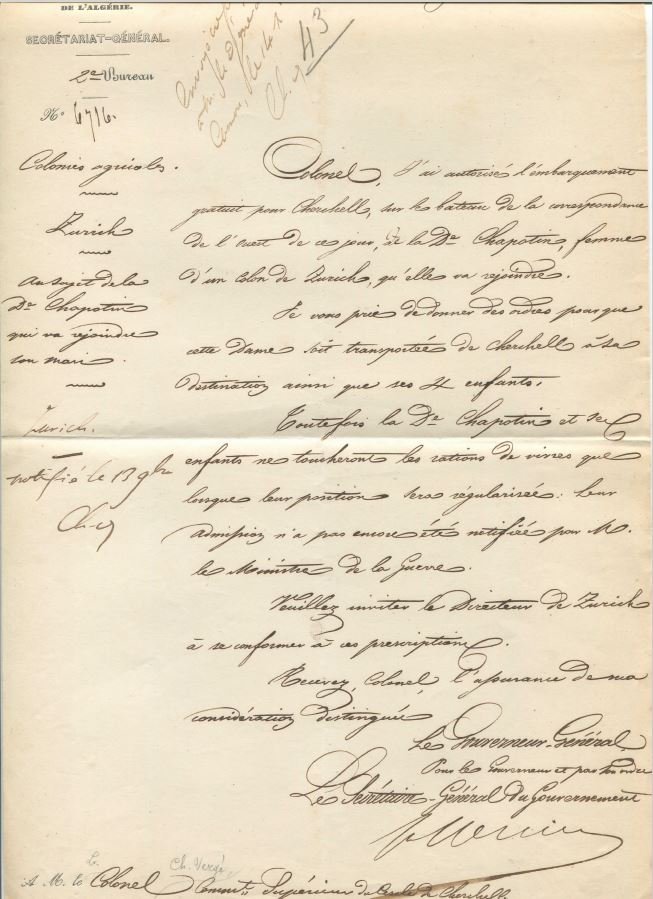 DE L'ALGÉRIE.
SECRÉTARIAT-GÉNÉRAL.
2e Bureau
No 6716.
43
Colonies agricoles.
Zurich
Au sujet de la
De Chapotin
qui va rejoindre
son mari.
Zurich.
notifié le 13 9bre
Colonel, J'ai autorisé l'embarquement
gratuit pour Cherchell, sur le bateau de la correspondance
de l'Ouest de ce jour, de la De Chapotin, femme
d'un colon de Zurich, qu'elle va rejoindre.
Je vous prie de donner des ordres pour que
cette Dame soit transportée de Cherchell à sa
destination ainsi que ses 4 enfants.
Toutefois la De Chapotin et ses
enfants ne toucheront les rations de vivres que
lorsque leur position sera régularisée: Leur
admission n'a pas encore été notifiée par M.
le Ministre de la Guerre.
Veuillez inviter le Directeur de Zurich
à se conformer à ces prescriptions.
Recevez, Colonel, l'assurance de ma
considération distinguée
Le Gouverneur-Général,
Pour le Gouverneur et par son ordre
Le Secrétaire-Général du Gouvernement
A M. le Lt Colonel Ch. Vergé
Command Supérieur du Cercle de Cherchell